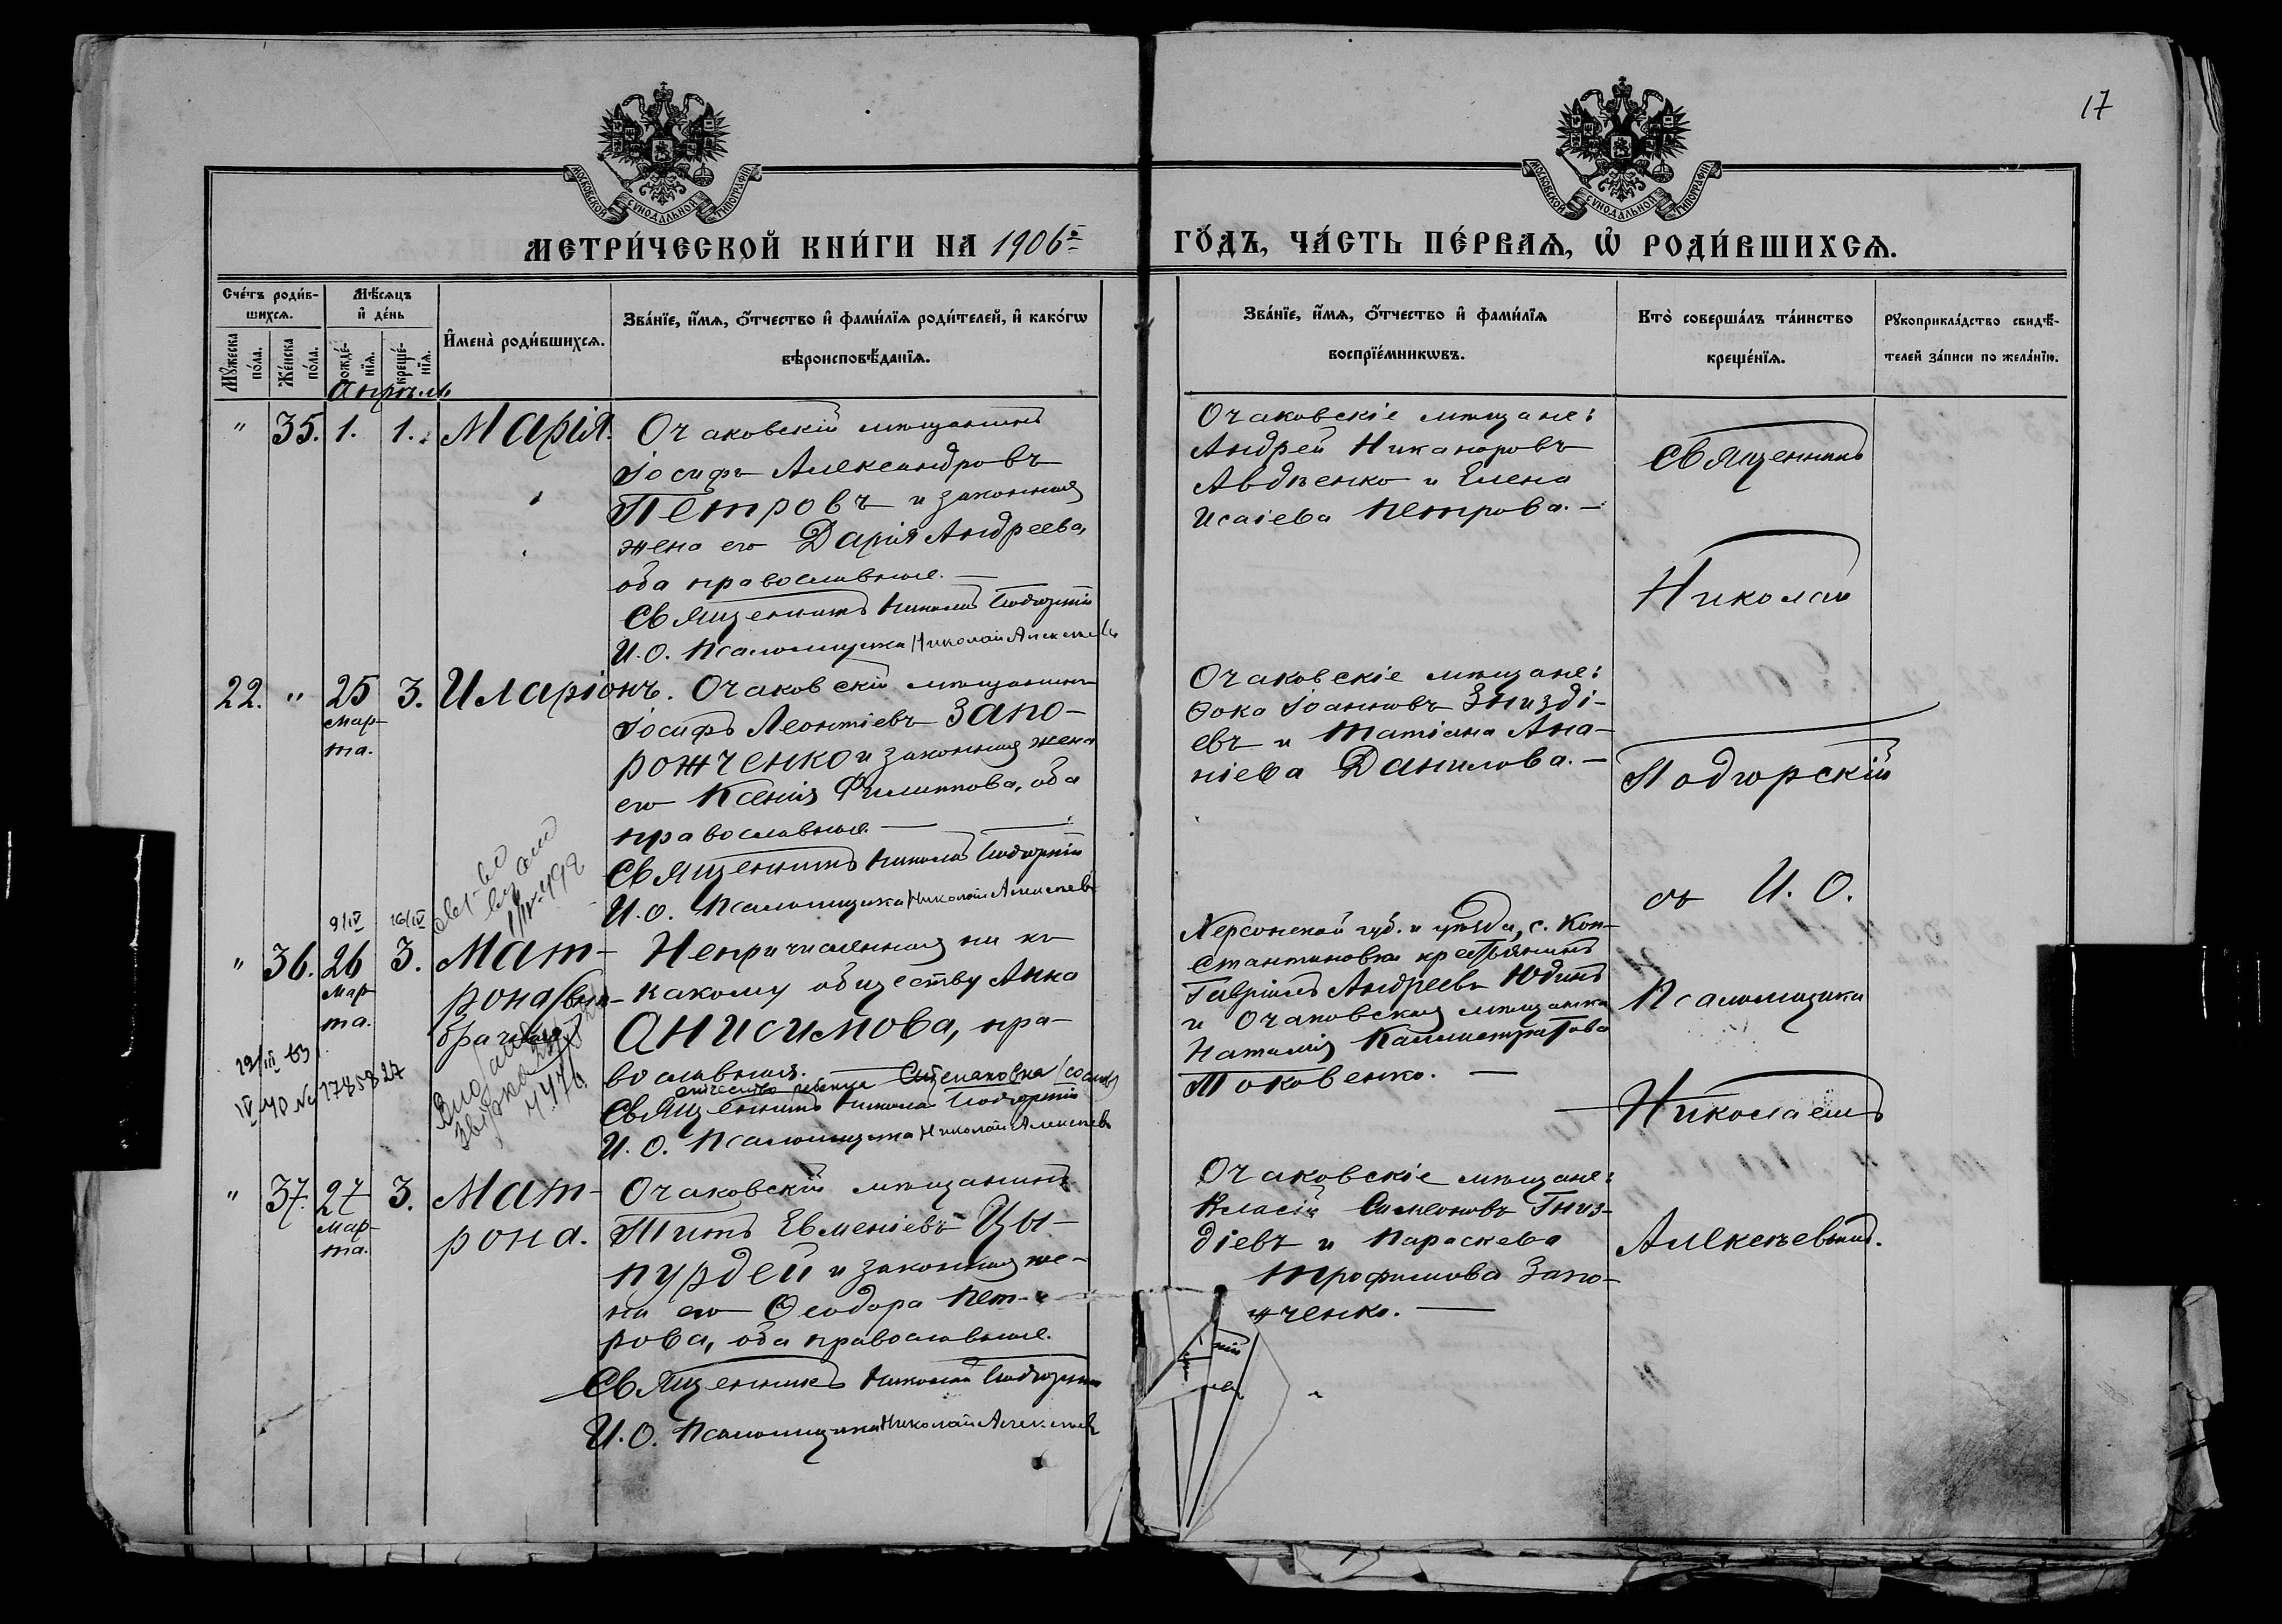 17
МОСКОВСКОЙ СѴНОДАЛЬНОЙ ТИПОГРАФІИ
МОСКОВСКОЙ СѴНОДАЛЬНОЙ ТИПОГРАФІИ
МЕТРИ́ЧЕСКОЙ КНИ́ГИ НА 1906й
ГО́ДЪ, ЧА́СТЬ ПЕ́РВАѦ, Ѡ҆ РОДИ́ВШИХСѦ.
Сче́тъ роди́в-
шихсѧ.
Мѣ́сѧцъ
и҆ де́нь
Мꙋ́жеска
по́ла.
Же́нска
по́ла.
рожде́-
нїѧ.
креще́-
нїѧ.
И҆мена̀ роди́вшихсѧ.
Зва́нїе, и҆́мѧ, ѻ҆́тчество и҆ фами́лїѧ роди́телей, и҆ како́гѡ
вѣроисповѣ́данїѧ.
Зва́нїе, и҆́мѧ, ѻ҆́тчество и҆ фами́лїѧ
воспрїе́мникѡвъ.
Кто̀ соверша́лъ та́инство
креще́нїѧ.
Рꙋкоприкла́дство свидѣ́-
телей за́писи по жела́нїю.
Апрѣль
" 35. 1. 1. Марія.
Очаковскій мѣщанинъ
Іосифъ Александровъ
Петровъ и законная
жена его Дарія Андреева,
оба православные. —
Священникъ Николай Подгорскій
И. О. Псаломщика Николай Алексѣевъ
Очаковскіе мѣщане:
Андрей Никаноровъ
Авдѣенко и Елена
Исаіева Петрова. —
22. " 25 Мар-
та. 3. Иларіонъ.
Очаковскій мѣщанинъ
Іосифъ Леонтіевъ Запо-
рожченко и законная жена
его Ксенія Филиппова, оба
православные. —
Священникъ Николай Подгорскій
И. О. Псаломщика Николай Алексѣевъ
Очаковскіе мѣщане:
Ѳока Іоанновъ Гнизді-
евъ и Татіана Ана-
ніева Данилова. —
9/IV 16/IV
" 36. 26 Мар-
та. 3. Мат-
рона (внѣ-
брачная)
Непричисленная ни къ
какому обществу Анна
Анисимова, пра-
вославная. —
отчество ребенка Степановна
Священникъ Николай Подгорскій
И. О. Псаломщика Николай Алексѣевъ
Херсонской губ. и уѣзда, с. Кон-
стантиновки крестьянинъ
Гавріилъ Андреевъ Юдинъ
и Очаковская мѣщанка
Наталія Каллистратова
Токовенко. —
" 37. 27 Мар-
та. 3. Мат-
рона.
Очаковскій мѣщанинъ
Титъ Евменіевъ Цы-
пурдей и законная же-
на его Ѳеодора Пет-
рова, оба православные.
Священникъ Николай Подгорскій
И. О. Псаломщика Николай Алексѣевъ
Очаковскіе мѣщане:
Власій Симеоновъ Гниз-
діевъ и Параскева
Трофимова Запо-
жченко. —
Священникъ
Николай
Подгорскій
съ И. О.
Псаломщика
Николаемъ
Алексѣевымъ.